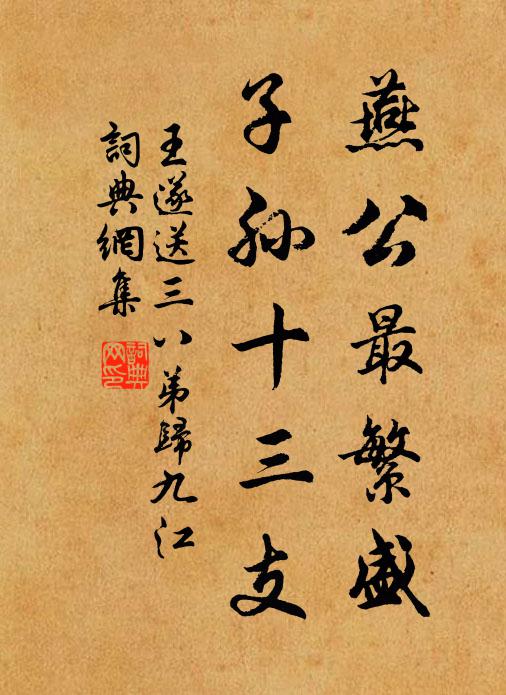 燕公最繁盛
子孙十三支
王遂送三八弟歸九江
詞典網集
詞典網印